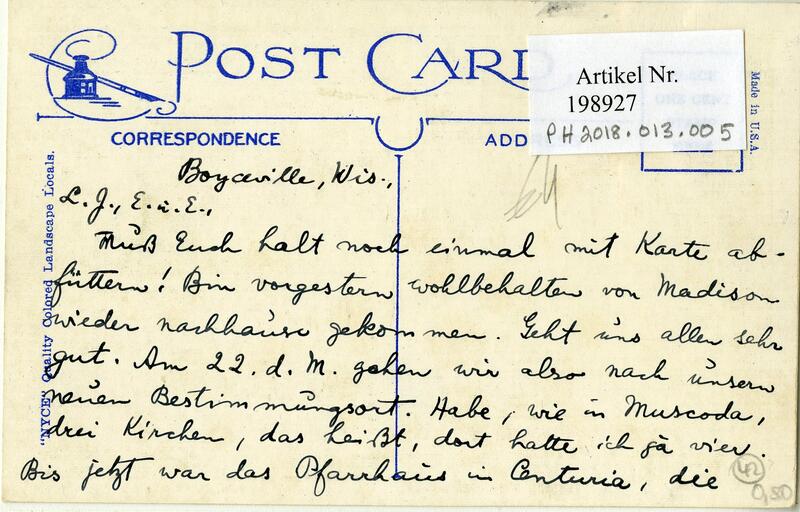 POST CARD
Artikel Nr.
198927
PH2018.013.005
CORRESPONDENCE
ADD
Made in U.S.A.
"NYCE" Quality Colored Landscape Locals.
Boyceville, Wis.,
L. J., E. u. E.,
Muß Euch halt noch einmal mit Karte ab-
füttern! Bin vorgestern wohlbehalten von Madison
wieder nachhause gekommen. Geht uns allen sehr
gut. Am 22. d. M. gehen wir also nach unsern
neuen Bestimmungsort. Habe, wie in Muscoda,
drei Kirchen, das heißt, dort hatte ich ja vier.
Bis jetzt war das Pfarrhaus in Centuria, die
42
0,50